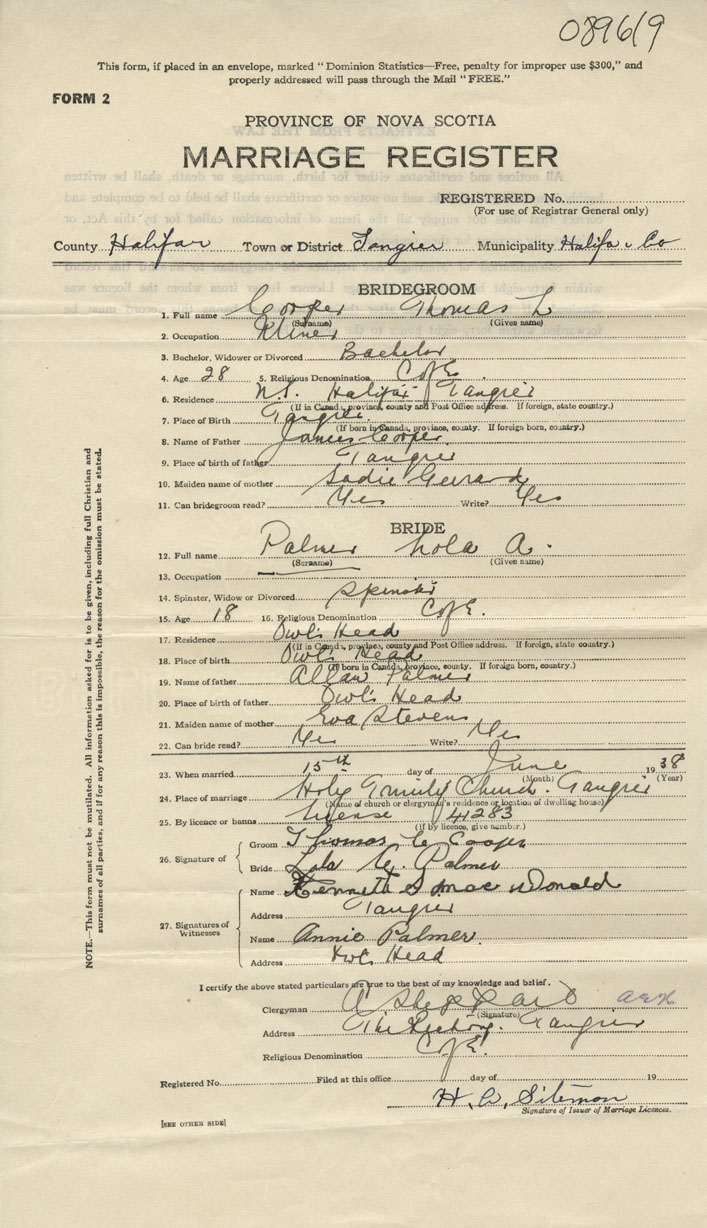 089619
This form, if placed in an envelope, marked “Dominion Statistics—Free, penalty for improper use $300,” and
properly addressed will pass through the Mail “FREE.”
FORM 2
PROVINCE OF NOVA SCOTIA
MARRIAGE REGISTER
REGISTERED No.
(For use of Registrar General only)
County Halifax Town or District Tangier Municipality Halifax Co
BRIDEGROOM
1. Full name Cooper Thomas L
(Surname) (Given name)
2. Occupation Miner
3. Bachelor, Widower or Divorced Bachelor
4. Age 28 5. Religious Denomination C of E.
6. Residence N.S. Halifax Tangier
(If in Canada, province, county and Post Office address. If foreign, state country.)
7. Place of Birth Tangier
(If born in Canada, province, county. If foreign born, country.)
8. Name of Father James Cooper
9. Place of birth of father Tangier
10. Maiden name of mother Sadie Gerrard
11. Can bridegroom read? Yes Write? Yes
BRIDE
12. Full name Palmer Lola A.
(Surname) (Given name)
13. Occupation
14. Spinster, Widow or Divorced Spinster
15. Age 18 16. Religious Denomination C of E.
17. Residence Owl's Head
(If in Canada, province, county and Post Office address. If foreign, state country.)
18. Place of birth Owl's Head
(If born in Canada, province, county. If foreign born, country.)
19. Name of father Allan Palmer
20. Place of birth of father Owl's Head
21. Maiden name of mother Eva Stevens
22. Can bride read? Yes Write? Yes
23. When married 15th day of June 1938
(Month) (Year)
24. Place of marriage Holy Trinity Church. Tangier
(Name of church or clergyman's residence or location of dwelling house)
25. By licence or banns License 41283
(If by licence, give number.)
26. Signature of
Groom Thomas Cooper
Bride Lola A. Palmer
27. Signatures of Witnesses
Name Kenneth S MacDonald
Address Tangier
Name Annie Palmer
Address Owl's Head
I certify the above stated particulars are true to the best of my knowledge and belief.
Clergyman
(Signature)
Address The Rectory. Tangier
Religious Denomination C of E.
Registered No. Filed at this office day of 19
H. W. Siteman
Signature of Issuer of Marriage Licences.
[SEE OTHER SIDE]
NOTE.—This form must not be mutilated. All information asked for is to be given, including full Christian and
surnames of all parties, and if for any reason this is impossible, the reason for the omission must be stated.